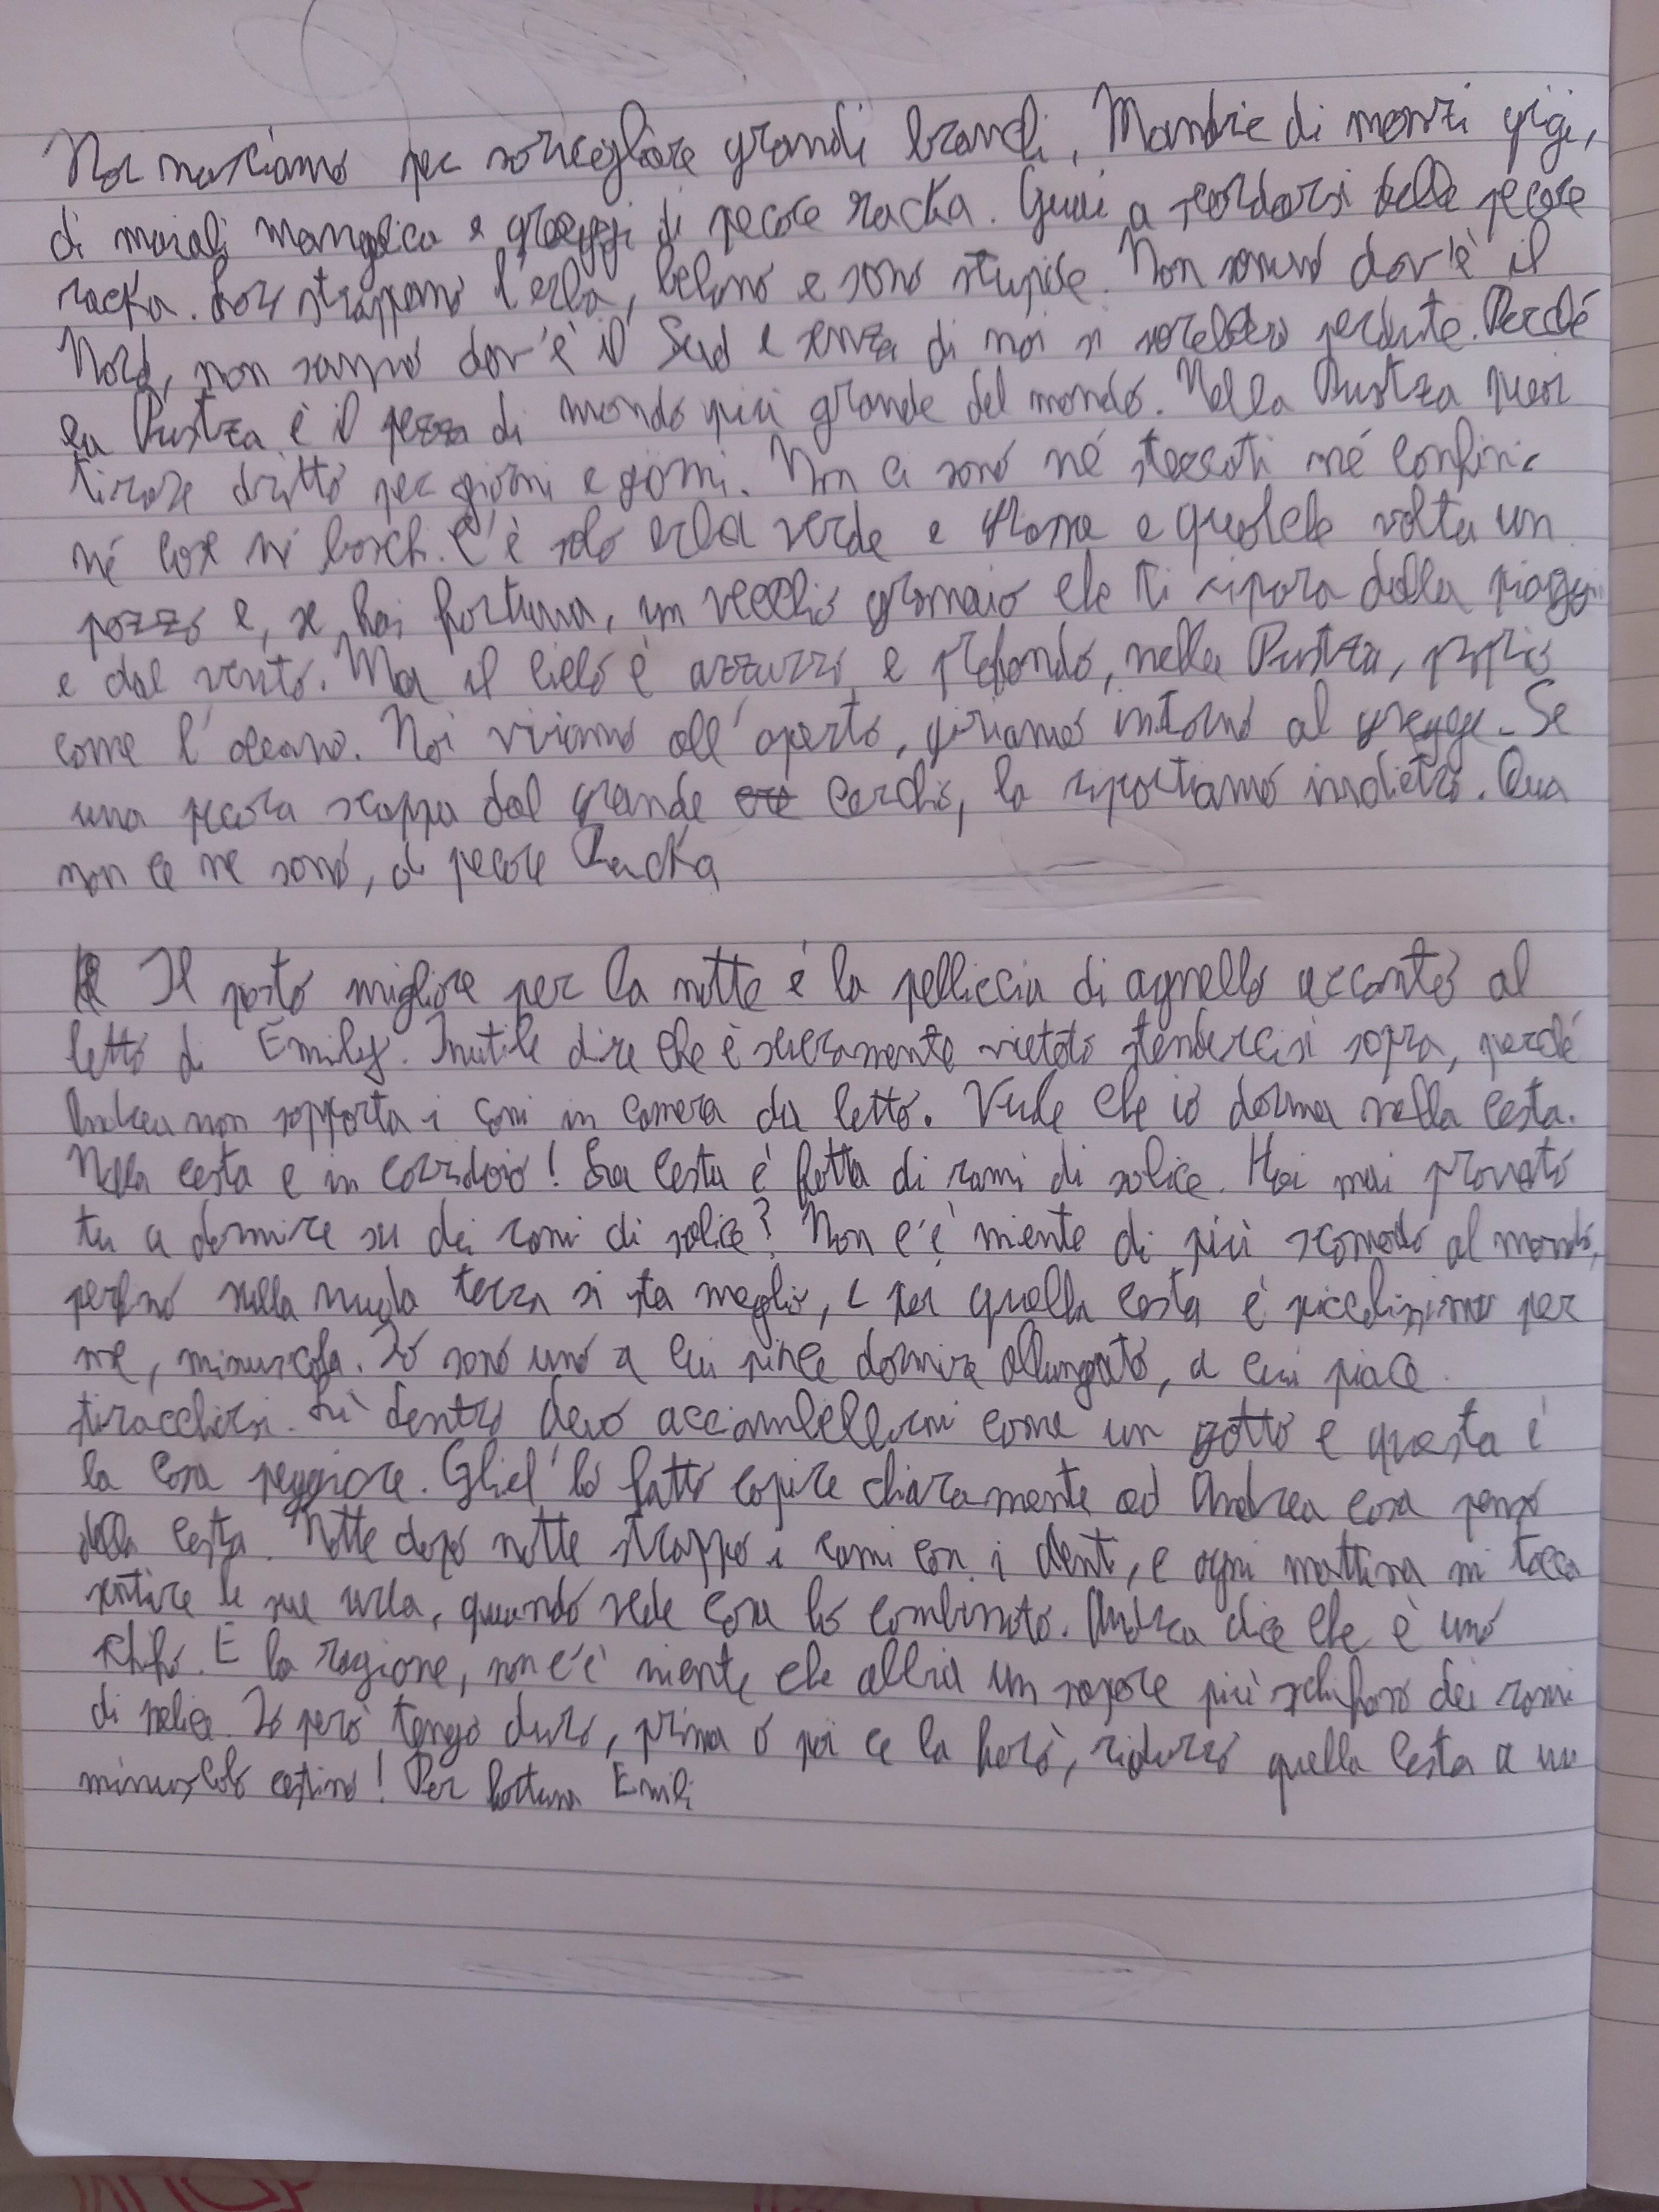 Noi nasciamo per sorvegliare grandi branchi, Mandrie di manzi grigi,
di maiali mangalica e greggi di pecore racka. Guai a scordarsi delle pecore
racka. Loro strappano l'erba, belano e sono stupide. Non sanno dov'è il
Nord, non sanno dov'è il Sud e senza di noi si sarebbero perdute. Perché
la Pustza è il pezzo di mondo più grande del mondo. Nella Pustza puoi
tirare dritto per giorni e giorni. Non ci sono né steccati né confini
né case né boschi. C'è solo erba verde e grassa e qualche volta un
pozzo e, se hai fortuna, un vecchio granaio che ti ripara dalla pioggia
e dal vento. Ma il cielo è azzurro e profondo, nella Pustza, proprio
come l'oceano. Noi viviamo all'aperto, giriamo intorno al gregge. Se
una pecora scappa dal grande cerchio, la riportiamo indietro. Qua
non ce ne sono, di pecore Racka
Il posto migliore per la notte è la pelliccia di agnello accanto al
letto di Emily. Inutile dire che è severamente vietato stendercisi sopra, perché
Andrea non sopporta i cani in camera da letto. Vuole che io dorma nella cesta.
Nella cesta e in corridoio! La cesta è fatta di rami di salice. Hai mai provato
tu a dormire su dei rami di salice? Non c'è niente di più scomodo al mondo,
perfino sulla nuda terra si sta meglio, e poi quella cesta è piccolissima per
me, minuscola. Io sono uno a cui piace dormire allungato, a cui piace
stiracchiarsi. Lì dentro devo acciambellarmi come un gatto e questa è
la cosa peggiore. Gliel'ho fatto capire chiaramente ad Andrea cosa penso
della cesta. Notte dopo notte strappo i rami con i denti, e ogni mattina mi tocca
sentire le sue urla, quando vede cosa ho combinato. Andrea dice che è uno
schifo. E ha ragione, non c'è niente che abbia un sapore più schifoso dei rami
di salice. Io però tengo duro, prima o poi ce la farò, ridurrò quella cesta a un
minuscolo cestino! Per fortuna Emili